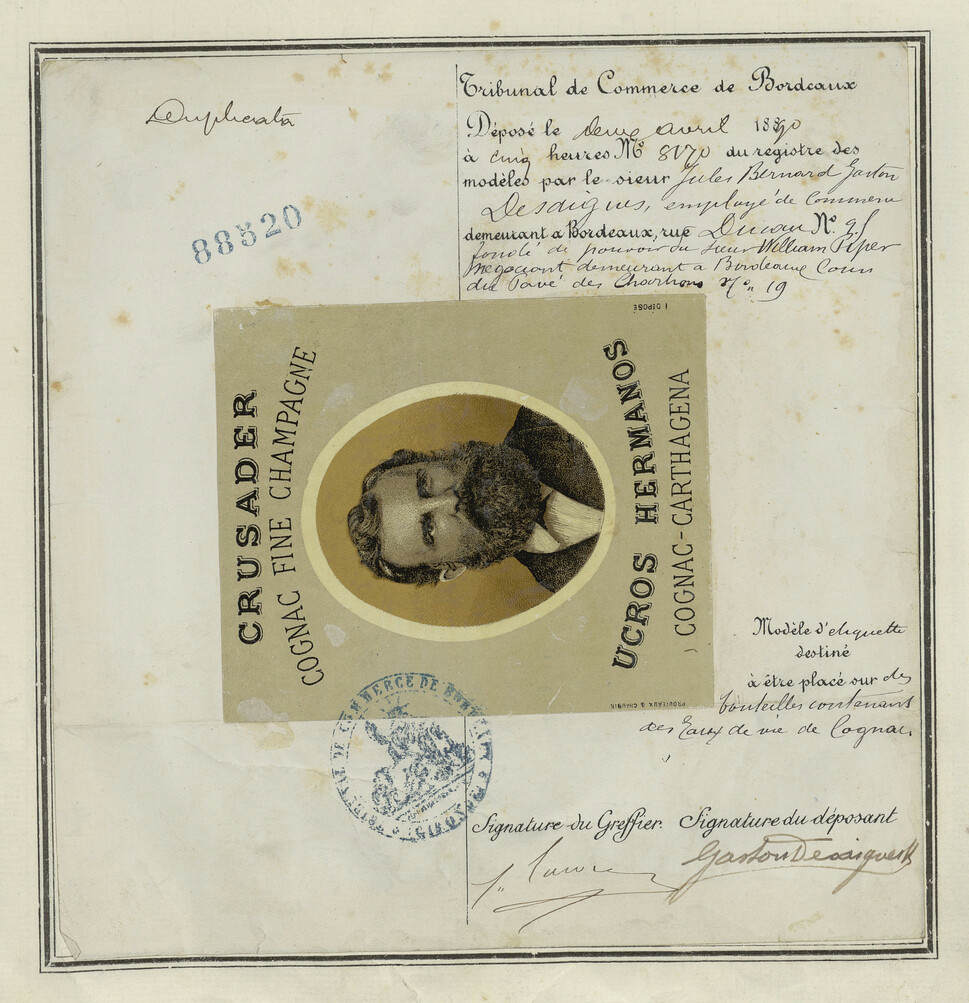 Duplicata
88520
Tribunal de Commerce de Bordeaux
Déposé le deux avril 1890
à cinq heures No 8170 du registre des
modèles par le sieur Jules Bernard Gaston
Desaigues, employé de commerce
demeurant à Bordeaux, rue No
fondé de pouvoir du sieur William Piper
négociant demeurant à Bordeaux Cours
du Pavé des Chartrons No 19
DÉPOSÉ
CRUSADER
COGNAC FINE CHAMPAGNE
UCROS HERMANOS
COGNAC-CARTHAGENA
PROUTEAUX & CHAUVIN
Modèle d'étiquette
destiné
à être placé sur des
bouteilles contenant
des Eaux de vie de Cognac.
TRIBUNAL DE COMMERCE DE BORDEAUX
Signature du Greffier. Signature du déposant
Gaston Desaigues